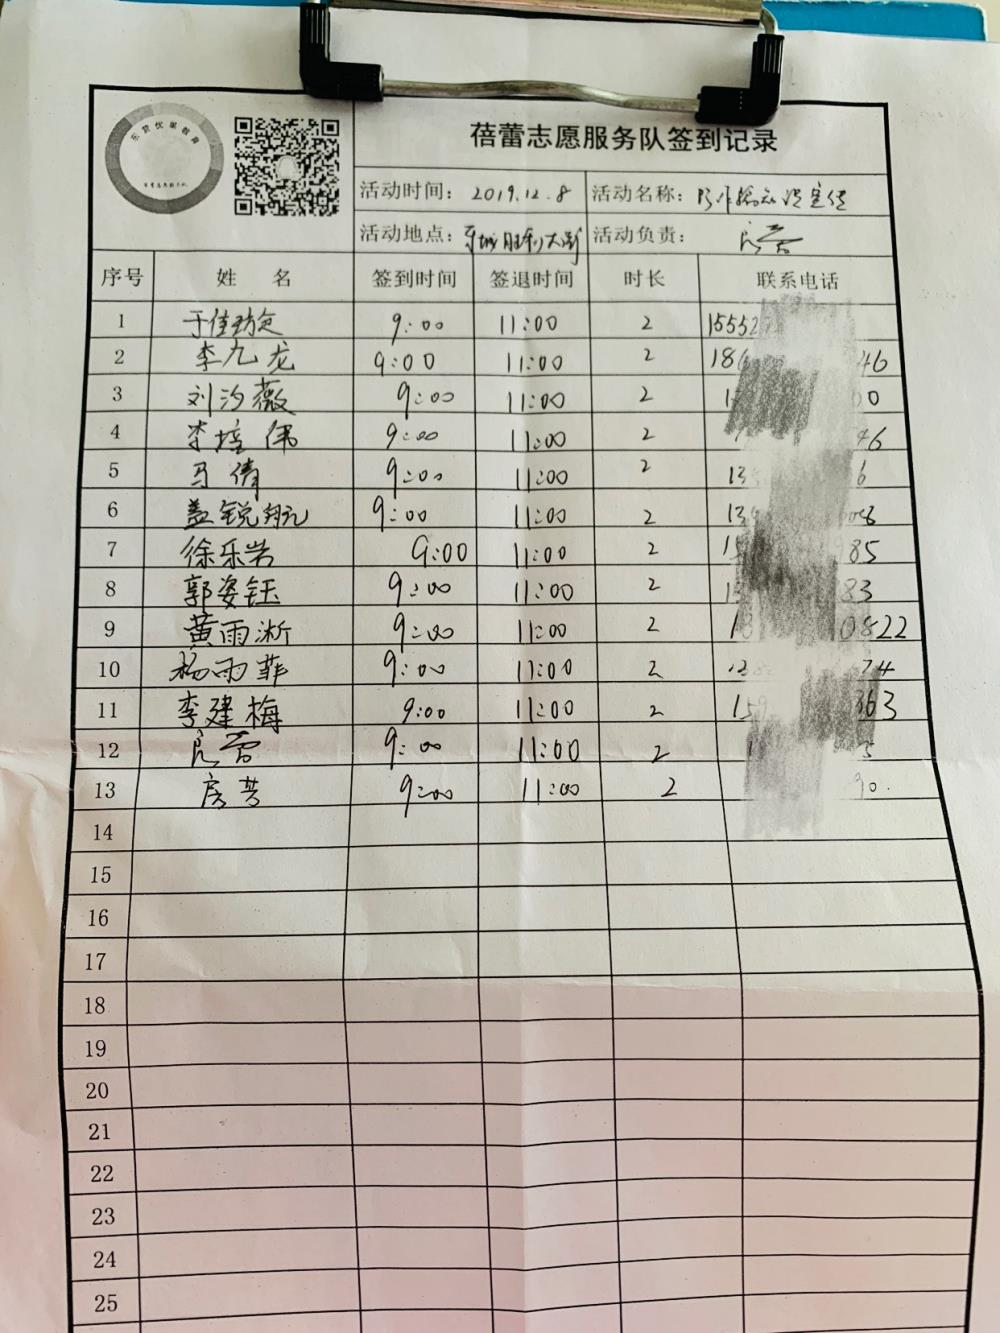 东营优策教育
蓓蕾志愿服务队签到记录
活动时间: 2019.12.8 活动名称:
活动地点: 东城胜利大街 活动负责:
序号 姓 名 签到时间 签退时间 时长 联系电话
1 于佳璇 9:00 11:00 2 15552
2 李九龙 9:00 11:00 2 18 46
3 刘汐薇 9:00 11:00 2 1 0
4 李培伟 9:00 11:00 2 46
5 马倩 9:00 11:00 2 13 6
6 盖锐航 9:00 11:00 2 13
7 徐乐岩 9:00 11:00 2 1 985
8 郭姿钰 9:00 11:00 2 1 83
9 黄雨淅 9:00 11:00 2 13 0822
10 杨雨菲 9:00 11:00 2 74
11 李建梅 9:00 11:00 2 159 363
12 9:00 11:00 2 1
13 9:00 11:00 2 90.
14
15
16
17
18
19
20
21
22
23
24
25